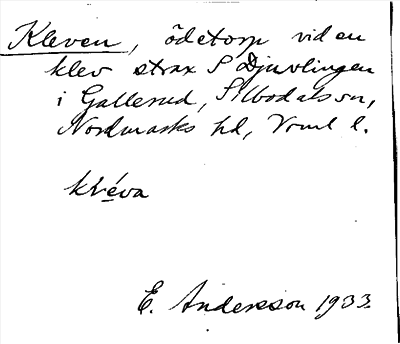 Kleven, ödetorp vid en
klev strax S Djuvlingen
i Gallerud, Silbodals sn,
Nordmarks hd, Vrml l.
kléva
E. Andersson 1933.